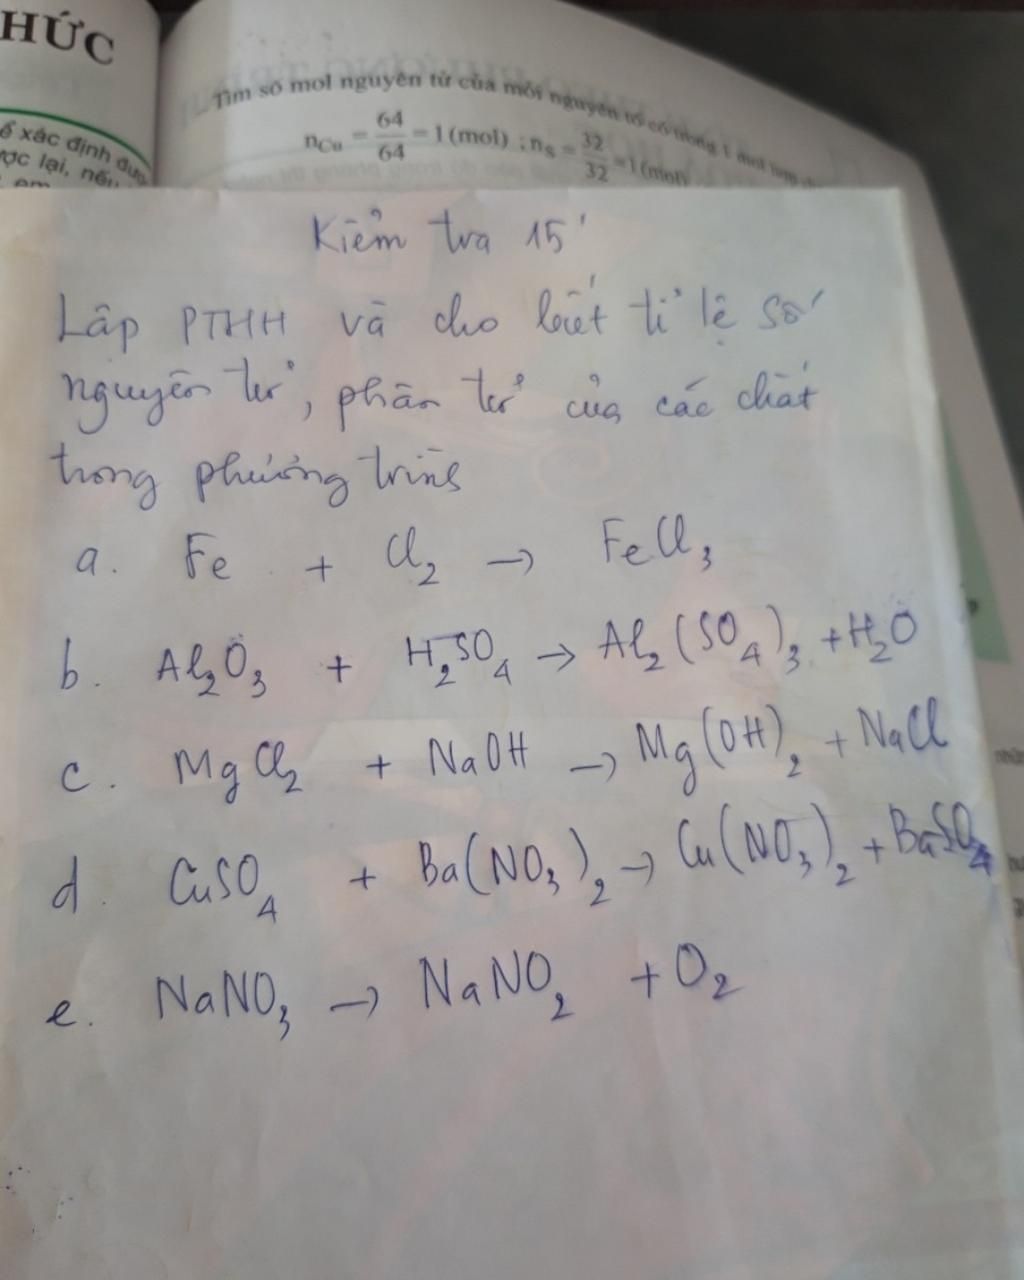 HỨC
ể xác định đượ
ợc lại, nếu
Tìm số mol nguyên tử của mỗi nguyên tố có trong 1 mol hợp
nCu = 64/64 = 1 (mol) ; nS = 32/32 = 1 (mol)
Kiểm tra 15'
Lập PTHH và cho biết tỉ lệ số
nguyên tử, phân tử của các chất
trong phương trình
a. Fe + Cl₂ → FeCl₃
b. Al₂O₃ + H₂SO₄ → Al₂(SO₄)₃ + H₂O
c. MgCl₂ + NaOH → Mg(OH)₂ + NaCl
d. CuSO₄ + Ba(NO₃)₂ → Cu(NO₃)₂ + BaSO₄
e. NaNO₃ → NaNO₂ + O₂